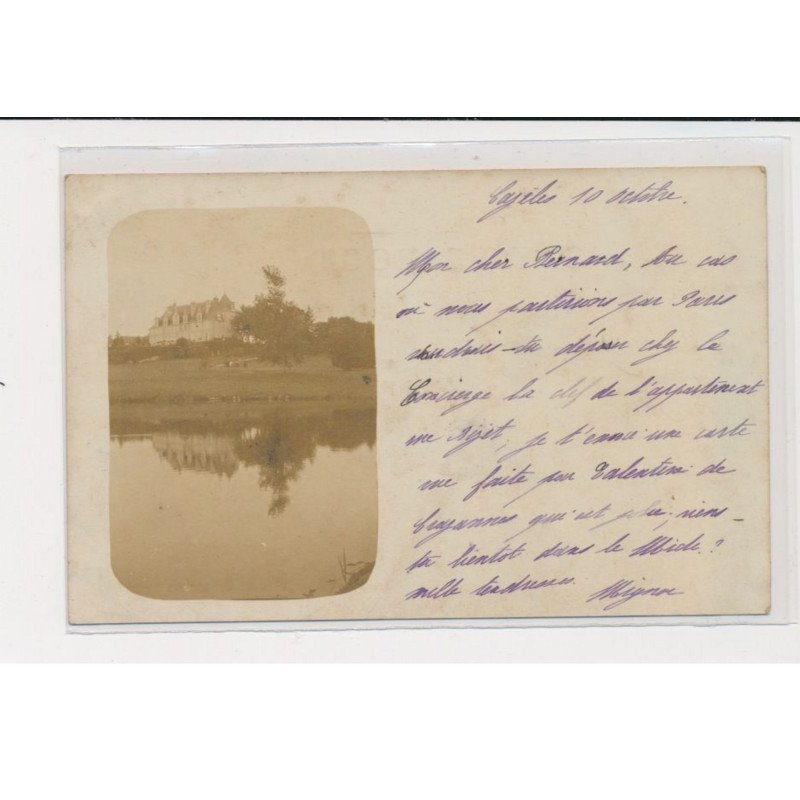 10 octobre.
Mon cher Bernard, Au cas
où nous partirions par Paris
voudrais-tu déposer chez le
Concierge la clef de l'appartement
je t'envoie une carte
vue faite par Valentine de
Crazannes qui est jolie, viens-
tu bientôt dans le Midi?
mille tendresses Mignon